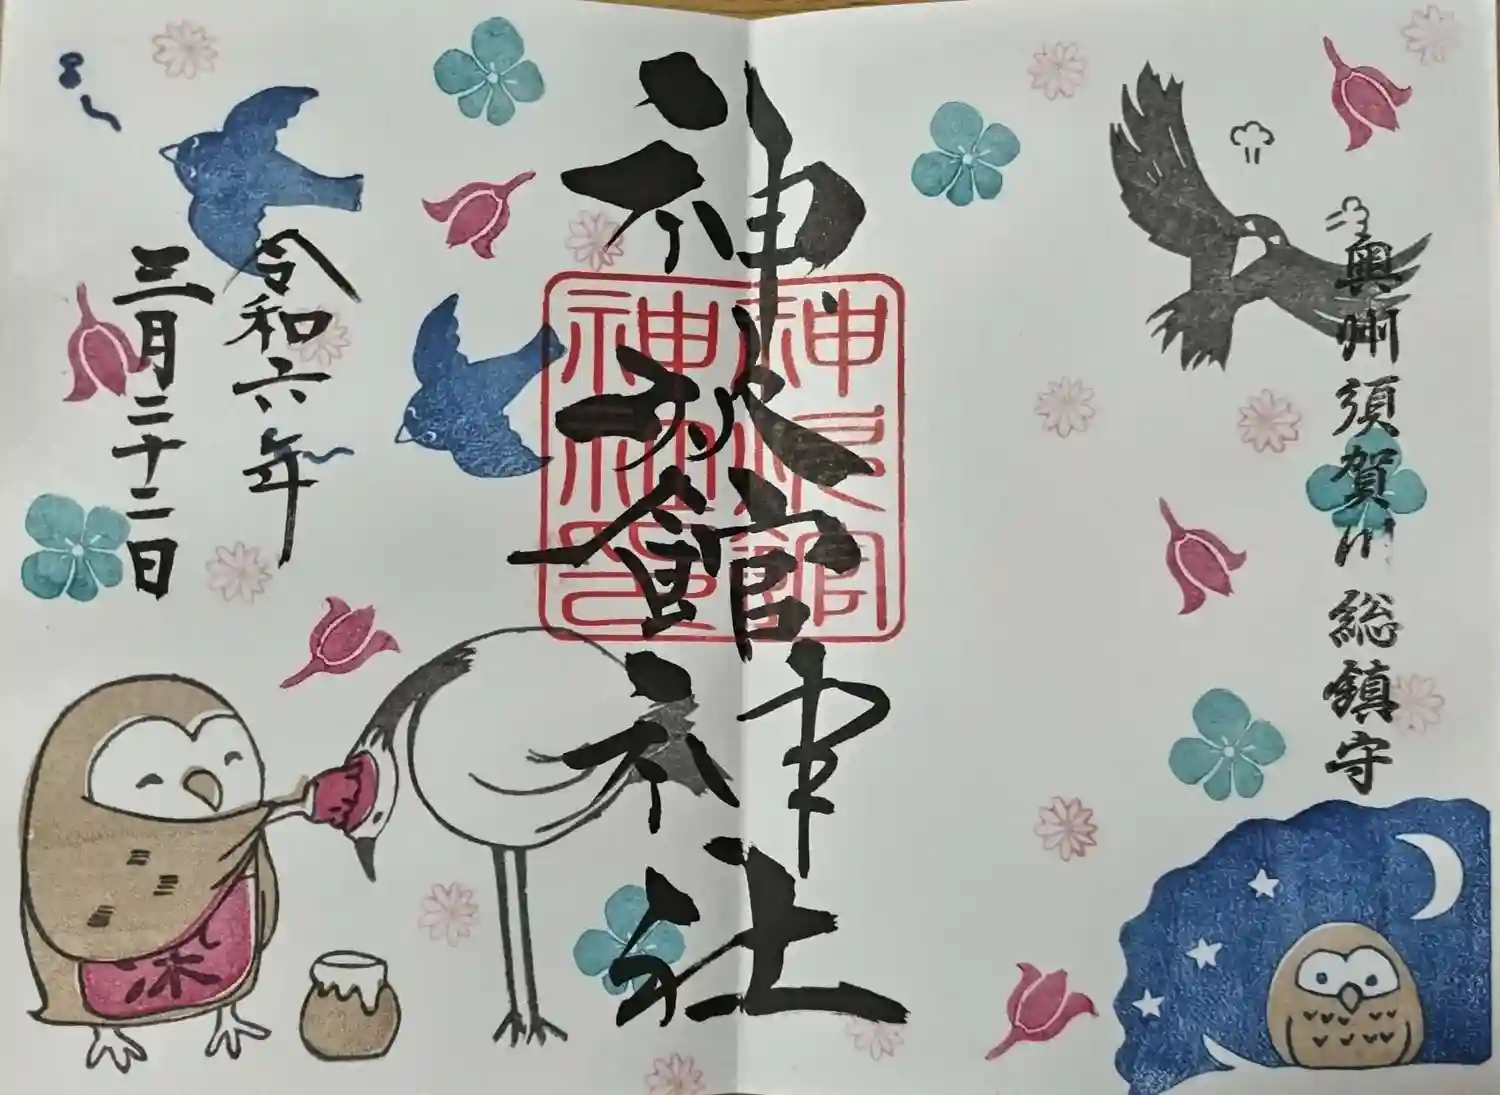 奥州須賀川 総鎮守
神炊館神社
神炊館
神社印
令和六年
三月二十二日
染